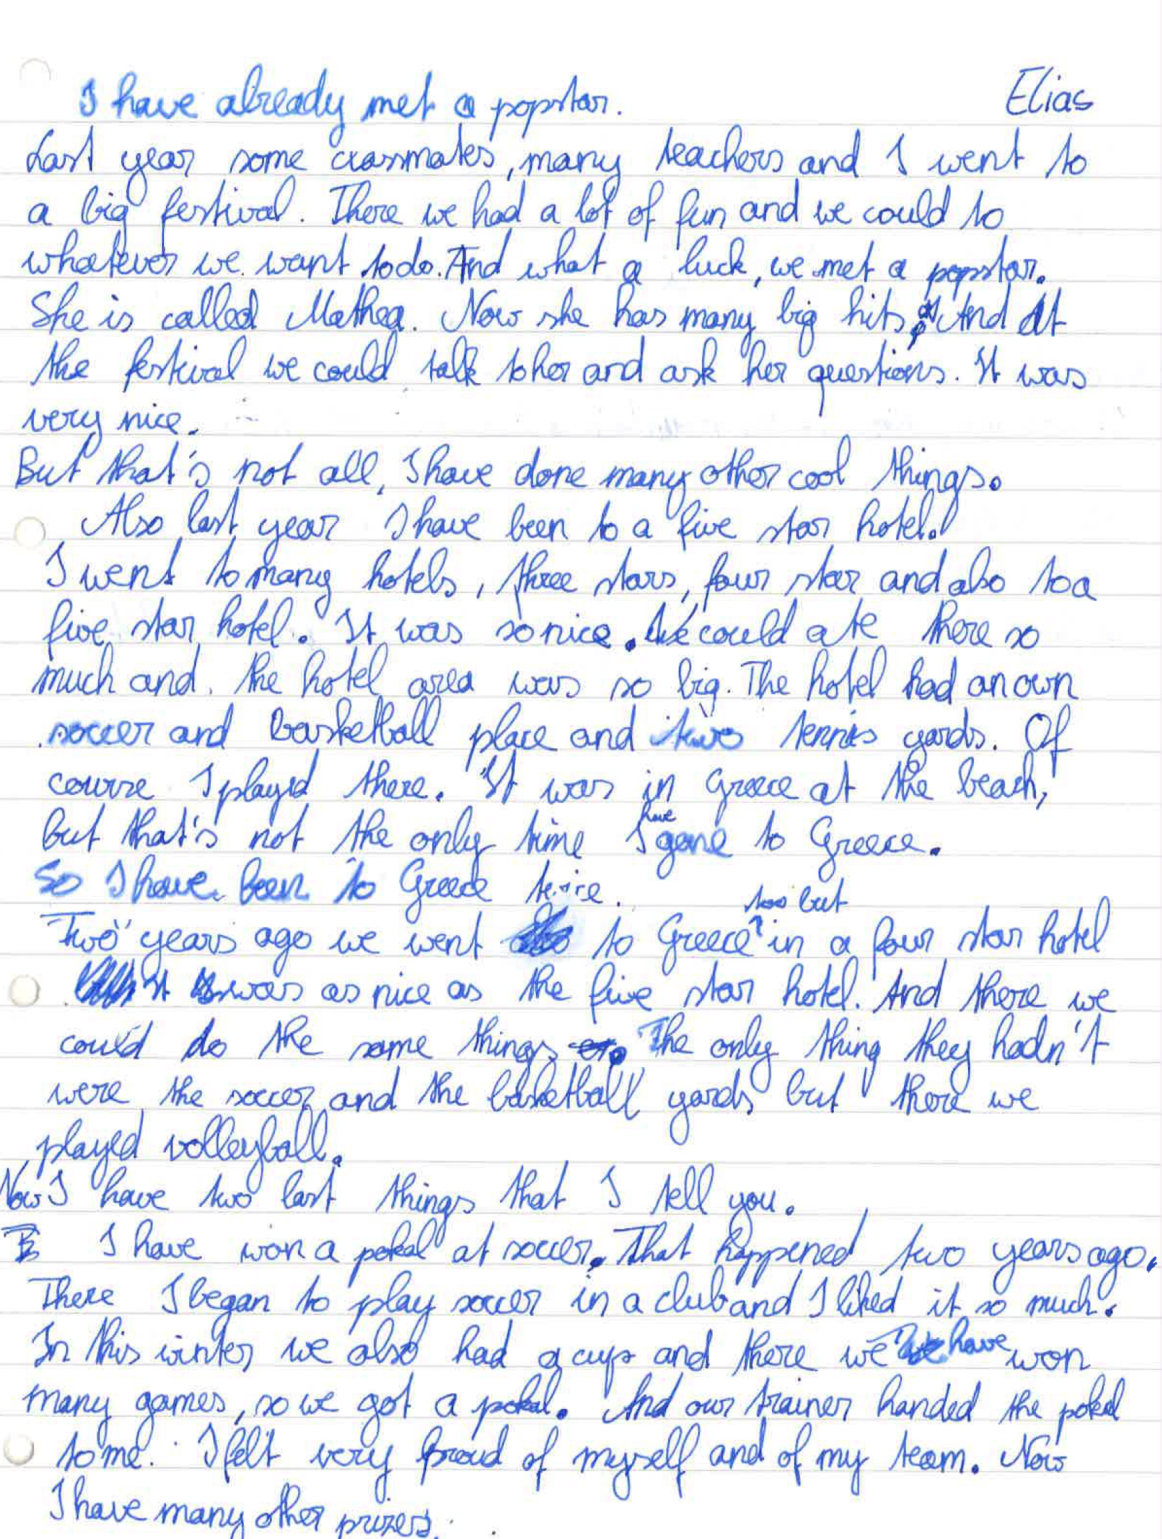 I have already met a popstar.
Elias
Last year some classmates, many teachers and I went to
a big festival. There we had a lot of fun and we could to
whatever we want to do. And what a luck, we met a popstar.
She is called Mathea. Now she has many big hits. And At
the festival we could talk to her and ask her questions. It was
very nice.
But that's not all, I have done many other cool things.
Also last year I have been to a five star hotel.
I went to many hotels, three stars, four star and also to a
five star hotel. It was so nice. We could ate there so
much and the hotel area was so big. The hotel had an own
soccer and basketball place and two tennis yards. Of
course I played there. It was in Greece at the beach,
but that's not the only time I have gone to Greece.
So I have been to Greece twice.
Two years ago we went to Greece too but in a four star hotel
It was as nice as the five star hotel. And there we
could do the same things. The only thing they hadn't
were the soccer and the basketball yards but there we
played volleyball.
Now I have two last things that I tell you.
I have won a pokal at soccer. That happened two years ago.
There I began to play soccer in a club and I liked it so much.
In this winter we also had a cup and there we have won
many games, so we got a pokal. And our trainer handed the pokal
to me. I felt very proud of myself and of my team. Now
I have many other prizers.